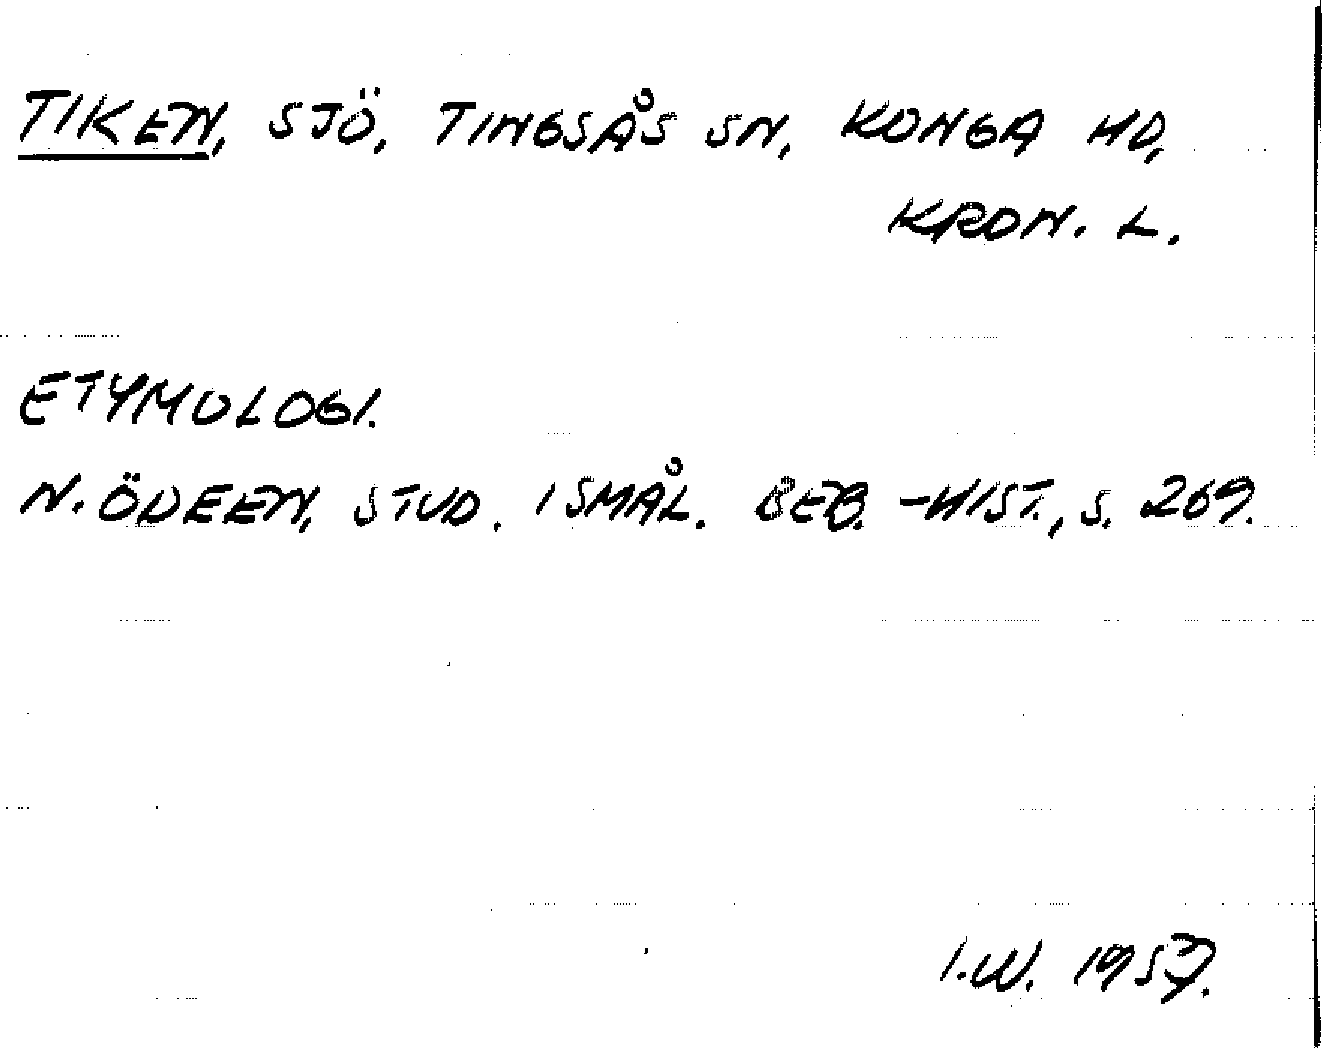 TIKEN, SJÖ, TINGSÅS SN, KONGA HD,
KRON. L.
ETYMOLOGI.
N. ÖDEEN, STUD. I SMÅL. BEB.-HIST., S. 269.
I.W. 1957.